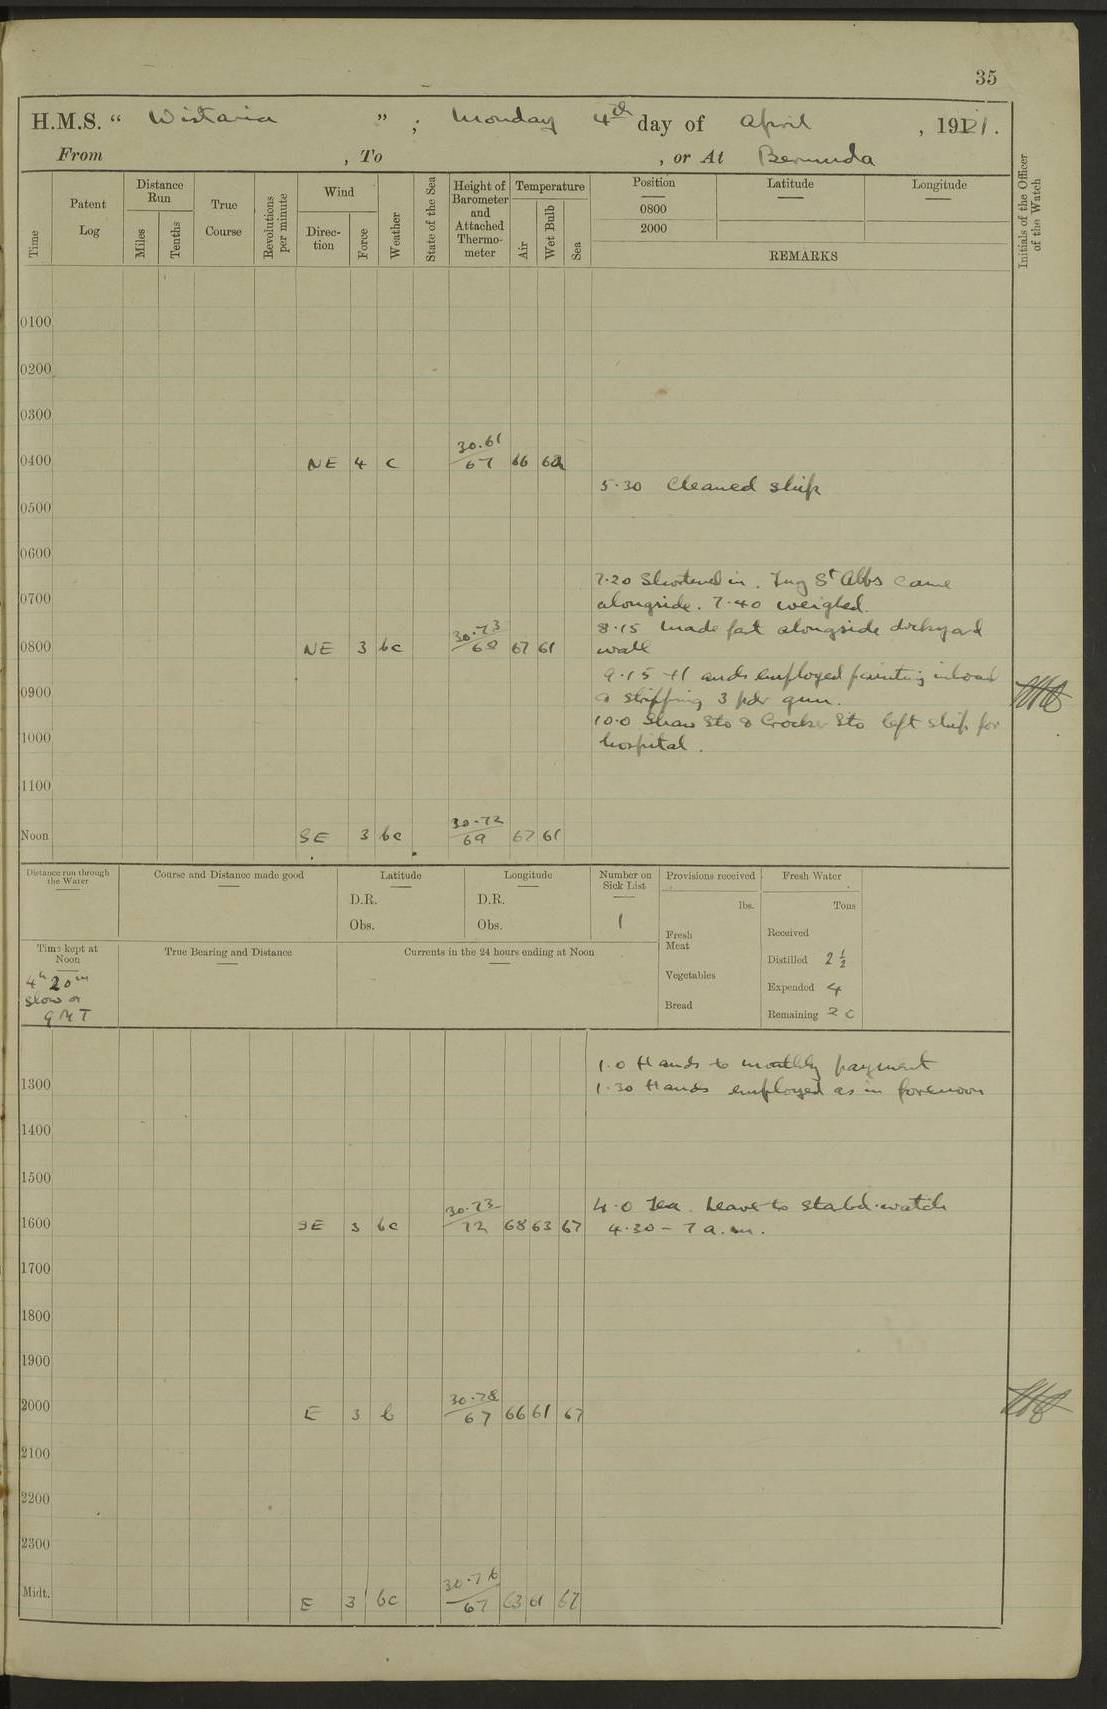 35
H.M.S. " Wistaria " ; Monday 4th day of April , 1921.
From , To , or At Bermuda
Time
Patent Log
Distance Run
Miles
Tenths
True Course
Revolutions per minute
Wind
Direc- tion
Force
Weather
State of the Sea
Height of Barometer and Attached Thermo- meter
Temperature
Air
Wet Bulb
Sea
Position Latitude Longitude
0800
2000
REMARKS
Initials of the Officer of the Watch
0100
0200
0300
0400 NE 4 c 30.61 67 66
5.30 Cleaned ship
0500
0600
7.20 Shortened in. Tug St Abbs came
0700 alongside. 7.40 weighed.
8.15 made fast alongside dockyard
0800 NE 3 bc 30.73 68 67 61 wall
9.15 Hands employed painting inboard
0900 & stripping 3 pdr gun.
10.0 Shaw Sto & Crocker Sto left ship for
1000 hospital.
1100
Noon SE 3 bc 30.72 69 67 61
Distance run through the Water
Course and Distance made good
Latitude
D.R.
Obs.
Longitude
D.R.
Obs.
Number on Sick List
1
Provisions received
lbs.
Fresh Meat
Vegetables
Bread
Fresh Water
Tons
Received
Distilled 2 1/2
Expended 4
Remaining 20
Time kept at Noon
4h 20m
slow on
GMT
True Bearing and Distance
Currents in the 24 hours ending at Noon
1.0 Hands to monthly payment
1300 1.30 Hands employed as in forenoon
1400
1500
4.0 Tea. Leave to starbd. watch
1600 SE 3 bc 30.73 72 68 63 67 4.30 - 7 a.m.
1700
1800
1900
2000 E 3 b 30.78 67 66 61 67
2100
2200
2300
Midt. E 3 bc 30.76 67 63 61 67